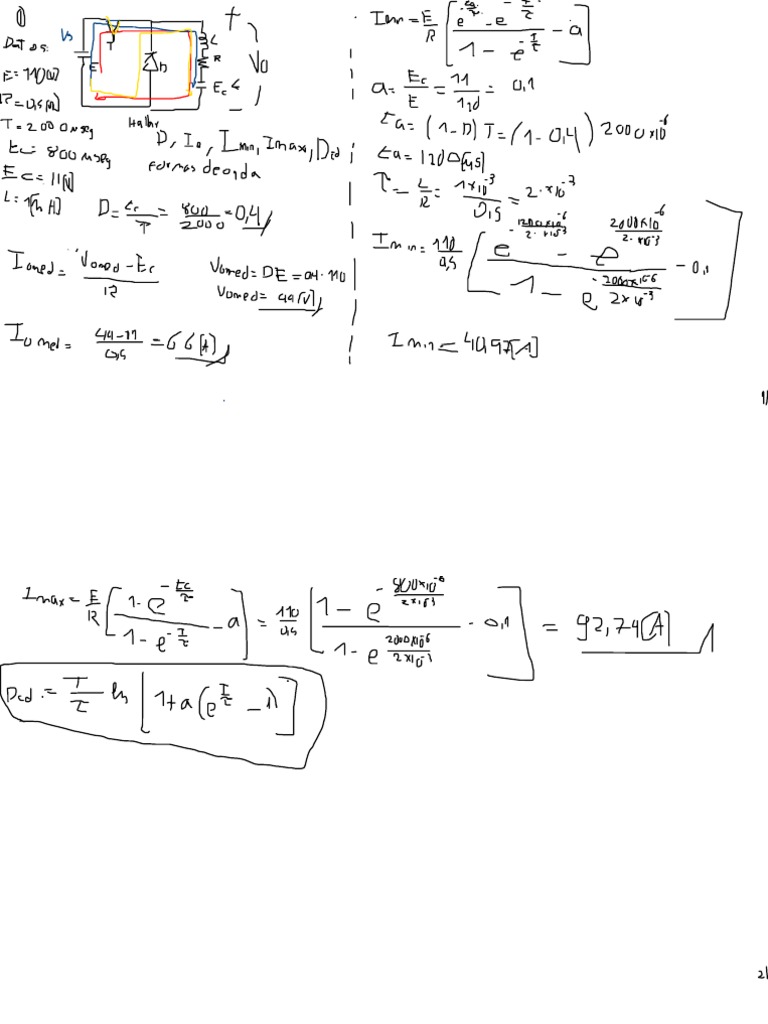 ①
Datos:
E = 110[V]
R = 0,5[Ω]
T = 2000 μseg
tc = 800 μseg
Ec = 11[V]
L = 1[mH]
Vs
T
E
D
L
R
Ec
+
Vo
-
Hallar
D, Io, Imin, Imax, Dcd
formas de onda
D = tc/T = 800/2000 = 0,4
Iomed = (Vomed - Ec)/R
Vomed = DE = 0.4 · 110
Vomed = 44[V]
Iomed = (44-11)/0,5 = 66[A]
Imin = E/R [(e^(-ta/τ) - e^(-T/τ))/(1 - e^(-T/τ)) - a]
a = Ec/E = 11/110 = 0,1
ta = (1-D)T = (1-0,4) 2000x10^-6
ta = 1200[μs]
τ = L/R = 1x10^-3/0,5 = 2·x10^-3
Imin = 110/0,5 [(e^(-1200x10^-6/2·x10^-3) - e^(2000x10^-6/2·x10^-3))/(1 - e^(-2000x10^-6/2x10^-3)) - 0,1]
Imin = 40,97[A]
1/
Imax = E/R [(1 - e^(-tc/τ))/(1 - e^(-T/τ)) - a] = 110/0,5 [(1 - e^(-800x10^-6/2x10^-3))/(1 - e^(2000x10^-6/2x10^-3)) - 0,1] = 92,74[A]
Dcd = T/τ ln [1 + a(e^(T/τ) - 1)]
2/